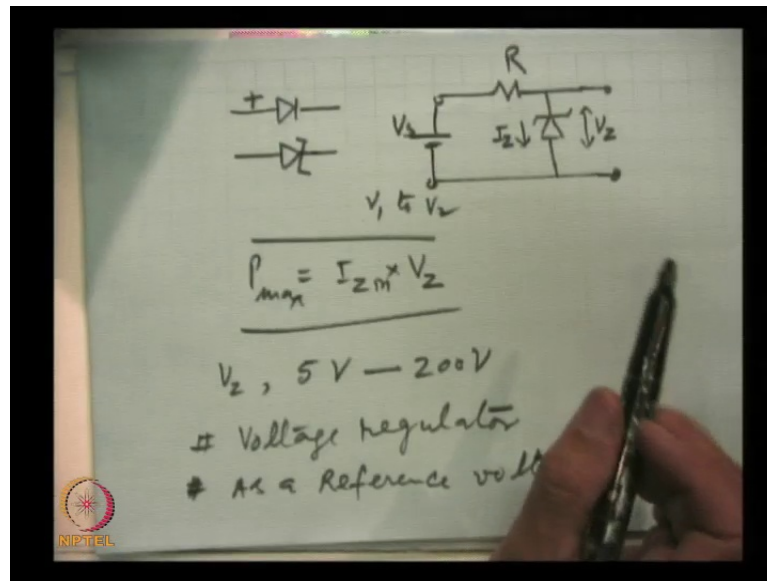 R
+
Vs
Iz ↓
Vz
V1 to V2
Pmax = Izm × Vz
Vz, 5V — 200V
# Voltage regulator
# As a Reference volt
NPTEL